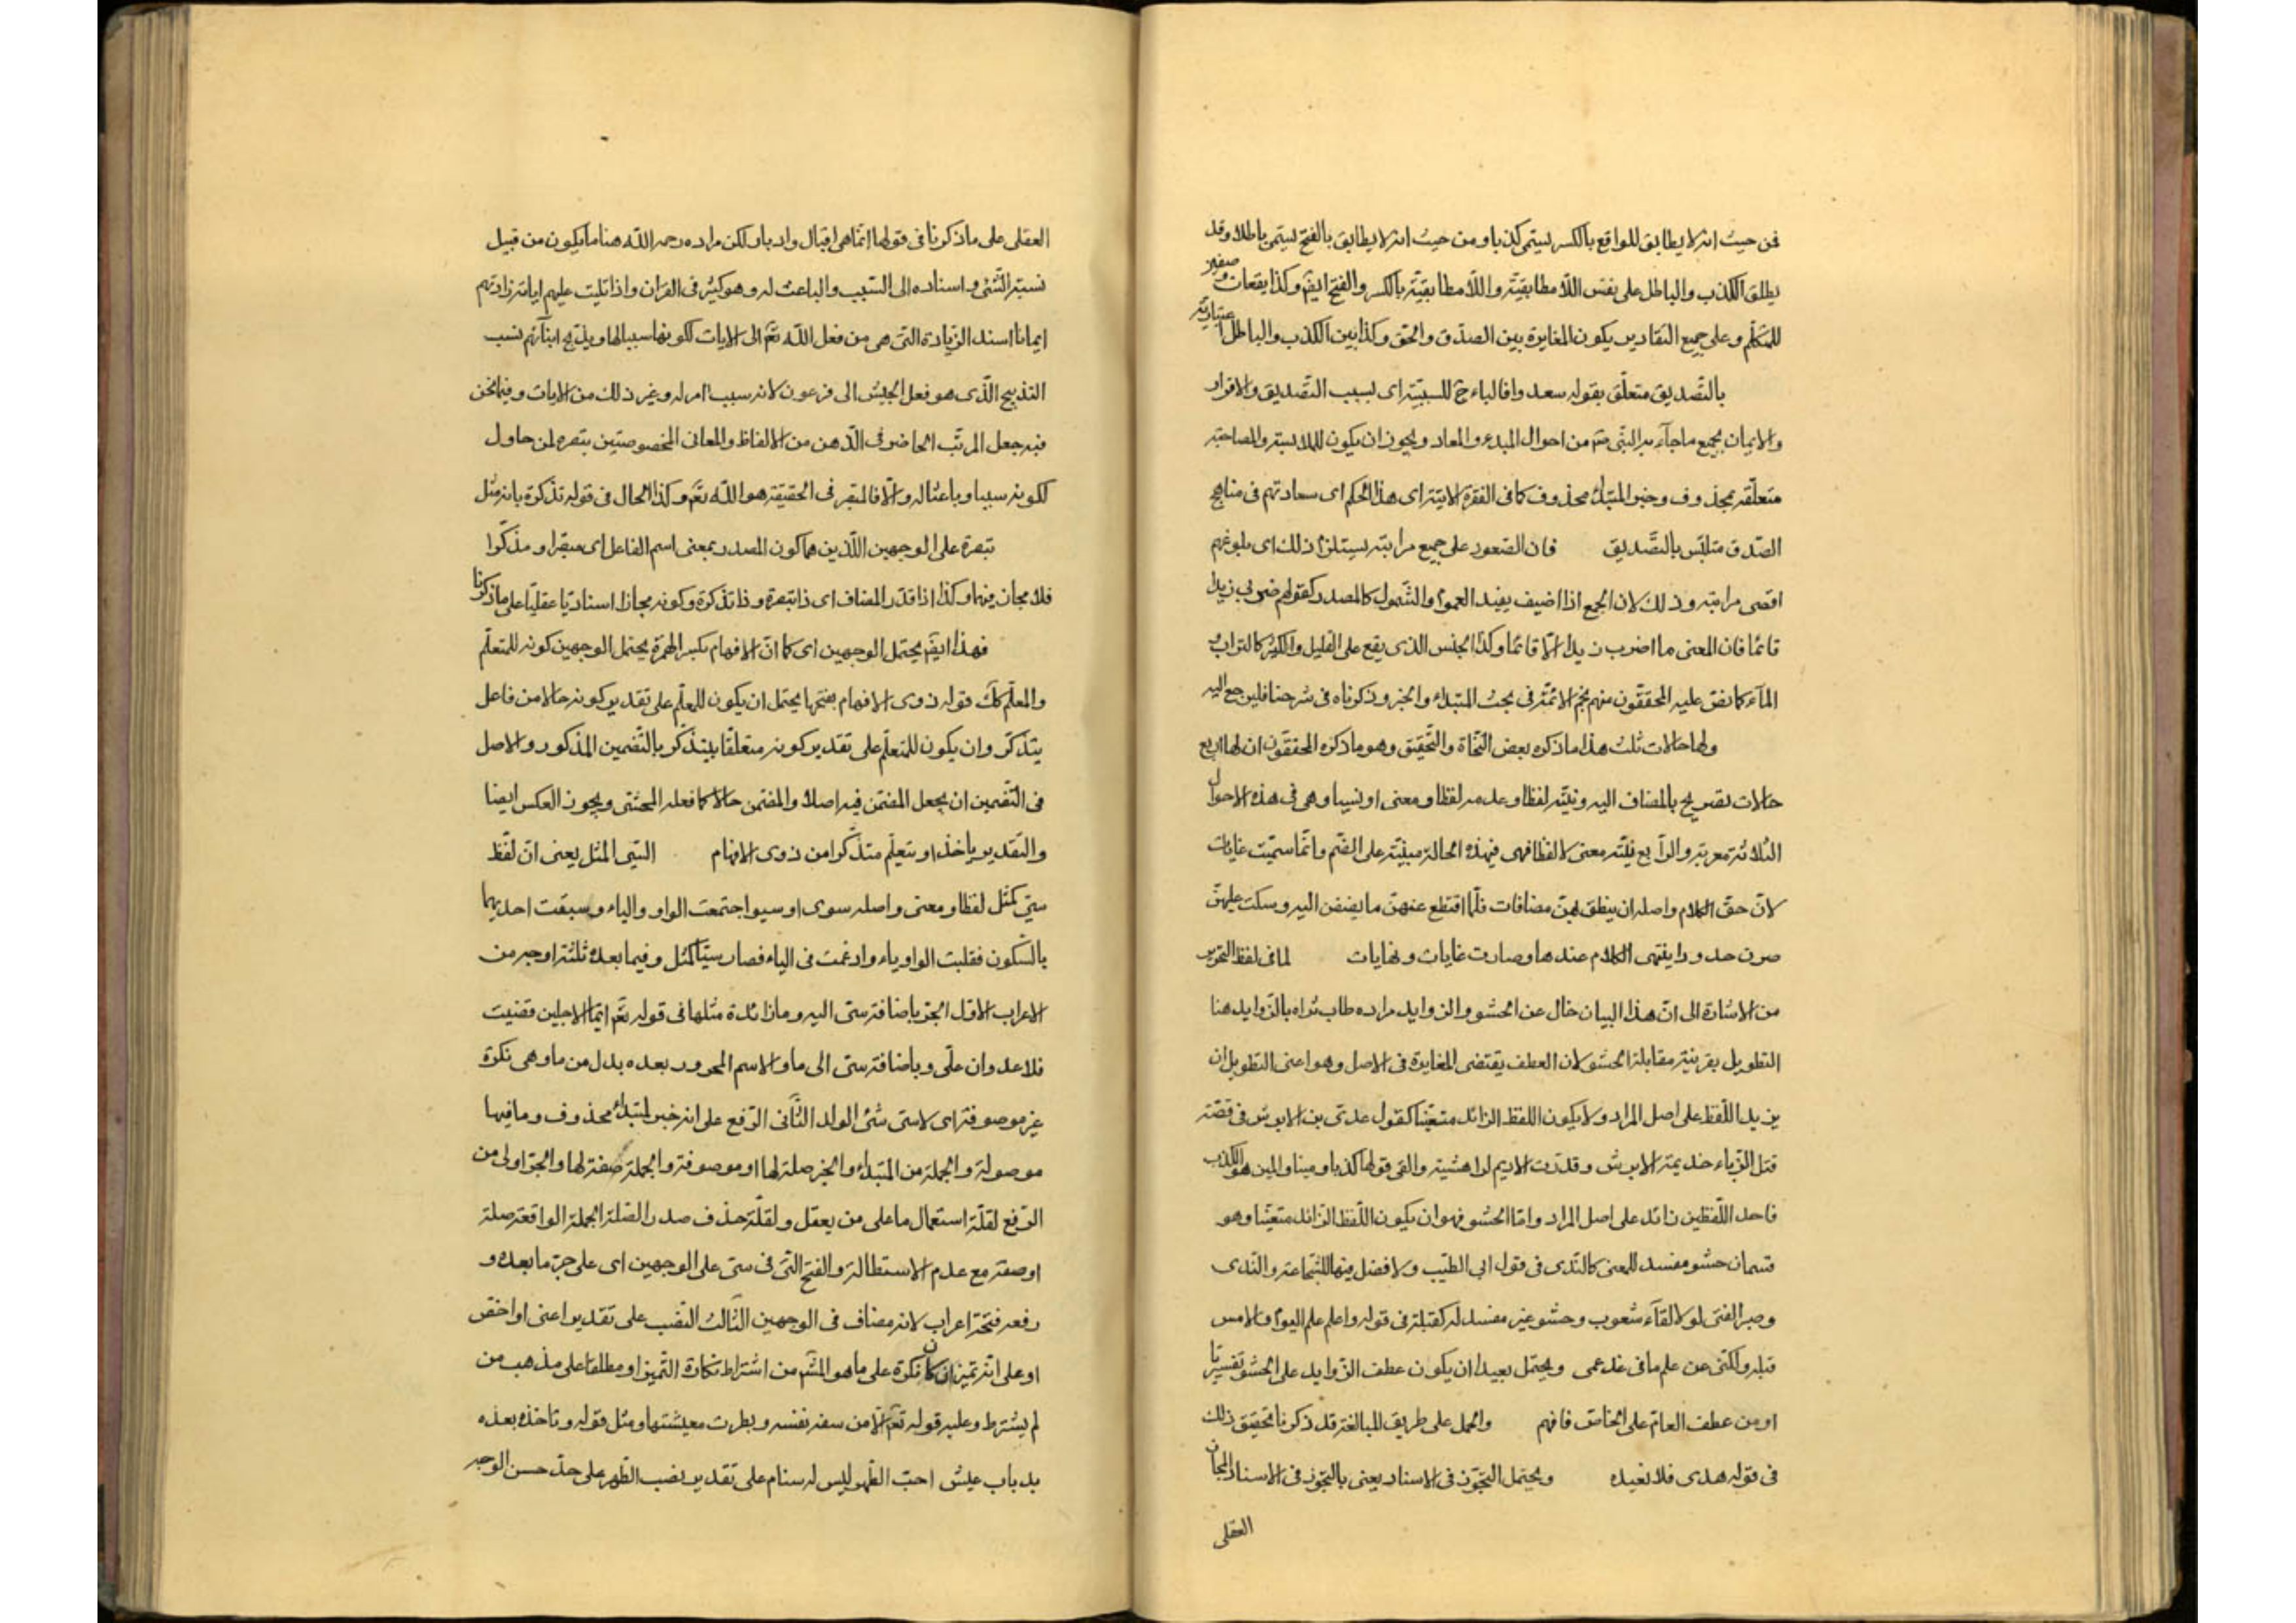 فمن حيث انه لا يطابق للواقع بالكسر يسمى كذبا ومن حيث انه لا يطابق بالفتح يسمى باطلا وقد
يطلق الكذب والباطل على نفس اللامطابقية واللامطابقية بالكسر والفتح ايضا وكذا يقعان صفتين
للمتكلم وعلى جميع التقادير يكون المغايرة بين الصدق والحق وكذا بين الكذب والباطل اعتبارية
بالتصديق متعلق بقوله سعد وا فالباء ح للسببية اى بسبب التصديق والاقرار
والايمان بجميع ما جآء به النبى من احوال المبدء والمعاد ويجوز ان يكون للملابسة والمصاحبة
متعلقه بمحذوف وخبر المبتدأ محذوف كما فى الفقرة الاتية اى هذا الحكم اى سعادتهم فى مناهج
الصدق متلبس بالتصديق فان الصعود على جميع مراتبه يستلزم ذلك اى بلوغهم
اقصى مراتبه وذلك لان الجمع اذا اضيف يفيد العموم والشمول كالمصدر كقولهم ضربى زيدا
قائما فان المعنى ما اضرب زيدا الا قائما وكذا الجنس الذى يقع على القليل والكثير كالتراب و
المآء كما نص عليه المحققون منهم نجم الائمة فى بحث المبتداء والخبر وذكرناه فى شرحنا فليرجع اليه
ولها حالات ثلث هذا ما ذكره بعض النحاة والتحقيق وهو ما ذكره المحققون ان لها اربع
حالات تصريح بالمضاف اليه ونيته لفظا وعدمه لفظا ومعنى او نسيا وهى فى هذه الاحوال
الثلاثة معربة والرابع نيته معنى لا لفظا فهى فى هذه الحالة مبنية على الضم وانما سميت غايات
لان حق الكلام واصله ان ينطق بهن مضافات فلما اقتطع عنهن ما يضفن اليه وسكت عليهن
صرن حدودا ينتهى الكلام عندها وصارت غايات ونهايات لما فى لفظ التحرير
من الاشارة الى ان هذا البيان خال عن الحشو والزوايد مراده طاب ثراه بالزوايد هنا
التطويل بقرينة مقابلة الحشو لان العطف يقتضى المغايرة فى الاصل وهو اعنى التطويل ان
يزيد اللفظ على اصل المراد ولا يكون اللفظ الزائد متعينا كقول عدى بن الابرش فى قصة
قتل الزباء خديمة الابرش وقددت الاديم لراهشيه والفى قولها كذبا ومينا والمين هو الكذب
فاحد اللفظين زائد على اصل المراد واما الحشو فهو ان يكون اللفظ الزائد متعينا وهو
قسمان حشو مفسد للمعنى كالندى فى قول ابى الطيب ولا فضل فيها للشجاعة والندى
وصبر الفتى لولا لقآء شعوب وحشو غير مفسد له كقبله فى قوله واعلم علم اليوم والامس
قبله ولكنى عن علم ما فى غد عمى ويحتمل بعيدا ان يكون عطف الزوايد على الحشو تفسيريا
او من عطف العام على الخاص فافهم والحمل على طريق المبالغة قد ذكرنا تحقيق ذلك
فى قوله هدى فلا نعيده ويحتمل التجوز فى الاسناد يعنى بالتجوز فى الاسناد المجاز
العقلى
العقلى على ما ذكرنا فى قولها انما هى اقبال وادبار لكن مراده رحمه الله هنا ما يكون من قبيل
نسبة الشئ واسناده الى السبب والباعث له وهو كثير فى القران واذا تليت عليهم اياته زادتهم
ايمانا اسند الزيادة التى هى من فعل الله تعم الى الايات لكونها سببا لها ويذبح ابنآئهم نسب
التذبيح الذى هو فعل الجيش الى فرعون لانه سبب امر له وغير ذلك من الايات وفيما نحن
فيه جعل المرتب الحاضر فى الذهن من الالفاظ والمعانى المخصوصتين تبصره لمن حاول
لكونه سببا وباعثا له والا فالمبصر فى الحقيقة هو الله تعم وكذا الحال فى قوله تذكرة بانه مثل
تبصرة على الوجهين اللذين هما كون المصدر بمعنى اسم الفاعل اى مبصرا ومذكرا
فلا مجاز فيها وكذا اذا قدر المضاف اى ذا تبصرة وذا تذكرة وكونه مجازا اسناديا عقليا على ما ذكرنا
فهذا ايضا يحتمل الوجهين اى كما ان الافهام بكسر الهمزة يحتمل الوجهين كونه للمتعلم
والمعلم كك قوله ذوى الافهام بفتحها يحتمل ان يكون للمعلم على تقدير كونه حالا من فاعل
يتذكر وان يكون للمتعلم على تقدير كونه متعلقا بيتذكر بالتضمين المذكور والاصل
فى التضمين ان يجعل المضمن فيه اصلا والمضمن حالا كما فعله المحشى ويجوز العكس ايضا
والتقدير ياخذ او يتعلم متذكرا من ذوى الافهام السى المثل يعنى ان لفظ
سى كمثل لفظا ومعنى واصله سوى او سيو اجتمعت الواو والياء وسبقت احديهما
بالسكون فقلبت الواو ياء وادغمت فى الياء فصار سيا كمثل وفيما بعده ثلثة اوجه من
الاعراب الاول الجر باضافة سى اليه وما زائدة مثلها فى قوله تعم ايما الاجلين قضيت
فلا عدوان على وباضافة سى الى ما والاسم المجرور بعده بدل من ما وهى نكرة
غير موصوفة اى لا سى شئ الولد الثانى الرفع على انه خبر لمبتدأ محذوف وما فيها
موصولة والجملة من المبتداء والخبر صلة لها او موصوفة والجملة صفة لها والجر اولى من
الرفع لقلة استعمال ما على من يعقل ولقلة حذف صدر الصلة الجملة الواقعة صلة
او صفة مع عدم الاستطالة والفتح التى فى سى على الوجهين اى على جر ما بعده و
رفعه فتحة اعراب لانه مضاف فى الوجهين الثالث النصب على تقدير اعنى او اخص
او على انه تميز ان كان نكرة على ما هو المشهم من اشتراط نكارة التميز او مطلقا على مذهب من
لم يشترط وعليه قوله تعم الا من سفه نفسه وبطرت معيشتها ومثل قوله وتاخذ بعده
بدباب عيش احب الظهر ليس له سنام على تقدير نصب الظهر على حد حسن الوجه